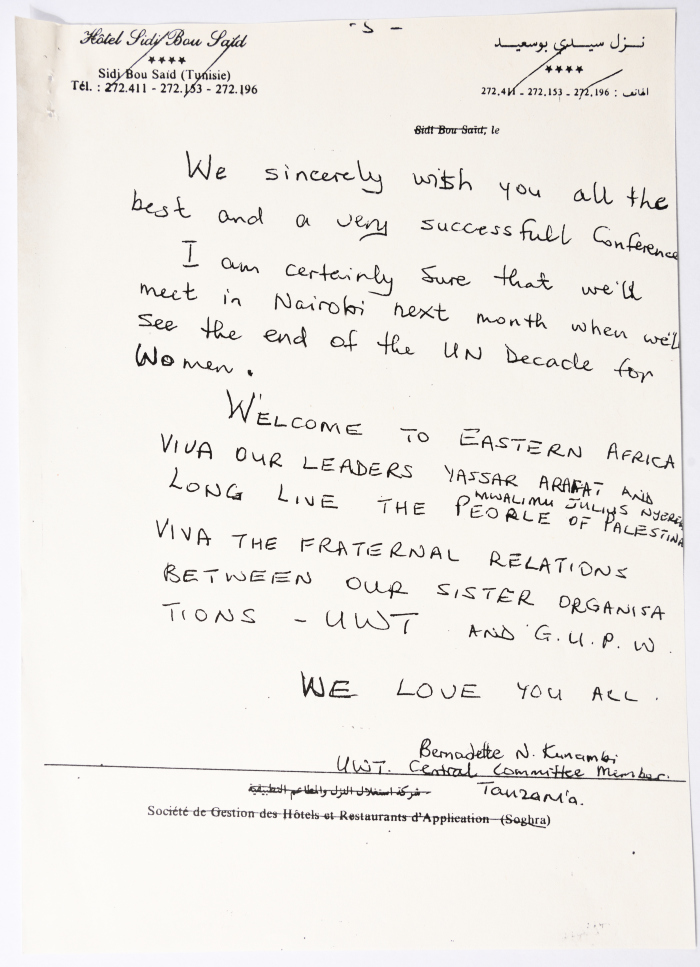 - 5 -
Hôtel Sidi Bou Saïd
****
Sidi Bou Saïd (Tunisie)
Tél. : 272.411 - 272.153 - 272.196
نزل سيدي بوسعيد
****
الهاتف : 272,196 - 272,153 - 272,411
Sidi Bou Saïd, le
We sincerely wish you all the
best and a very successfull Conference
I am certainly sure that we'll
meet in Nairobi next month when we'll
see the end of the UN Decade for
Women.
WELCOME TO EASTERN AFRICA
VIVA OUR LEADERS YASSAR ARAFAT AND
MWALIMU JULIUS NYERERE
LONG LIVE THE PEOPLE OF PALESTINA
VIVA THE FRATERNAL RELATIONS
BETWEEN OUR SISTER ORGANISA
TIONS - UWT AND G.U.P.W.
WE LOVE YOU ALL.
Bernadette N. Kunambi
UWT. Central Committee Member.
Tanzania.
شركة استغلال النزل والمطاعم التطبيقية
Société de Gestion des Hôtels et Restaurants d'Application (Soghra)